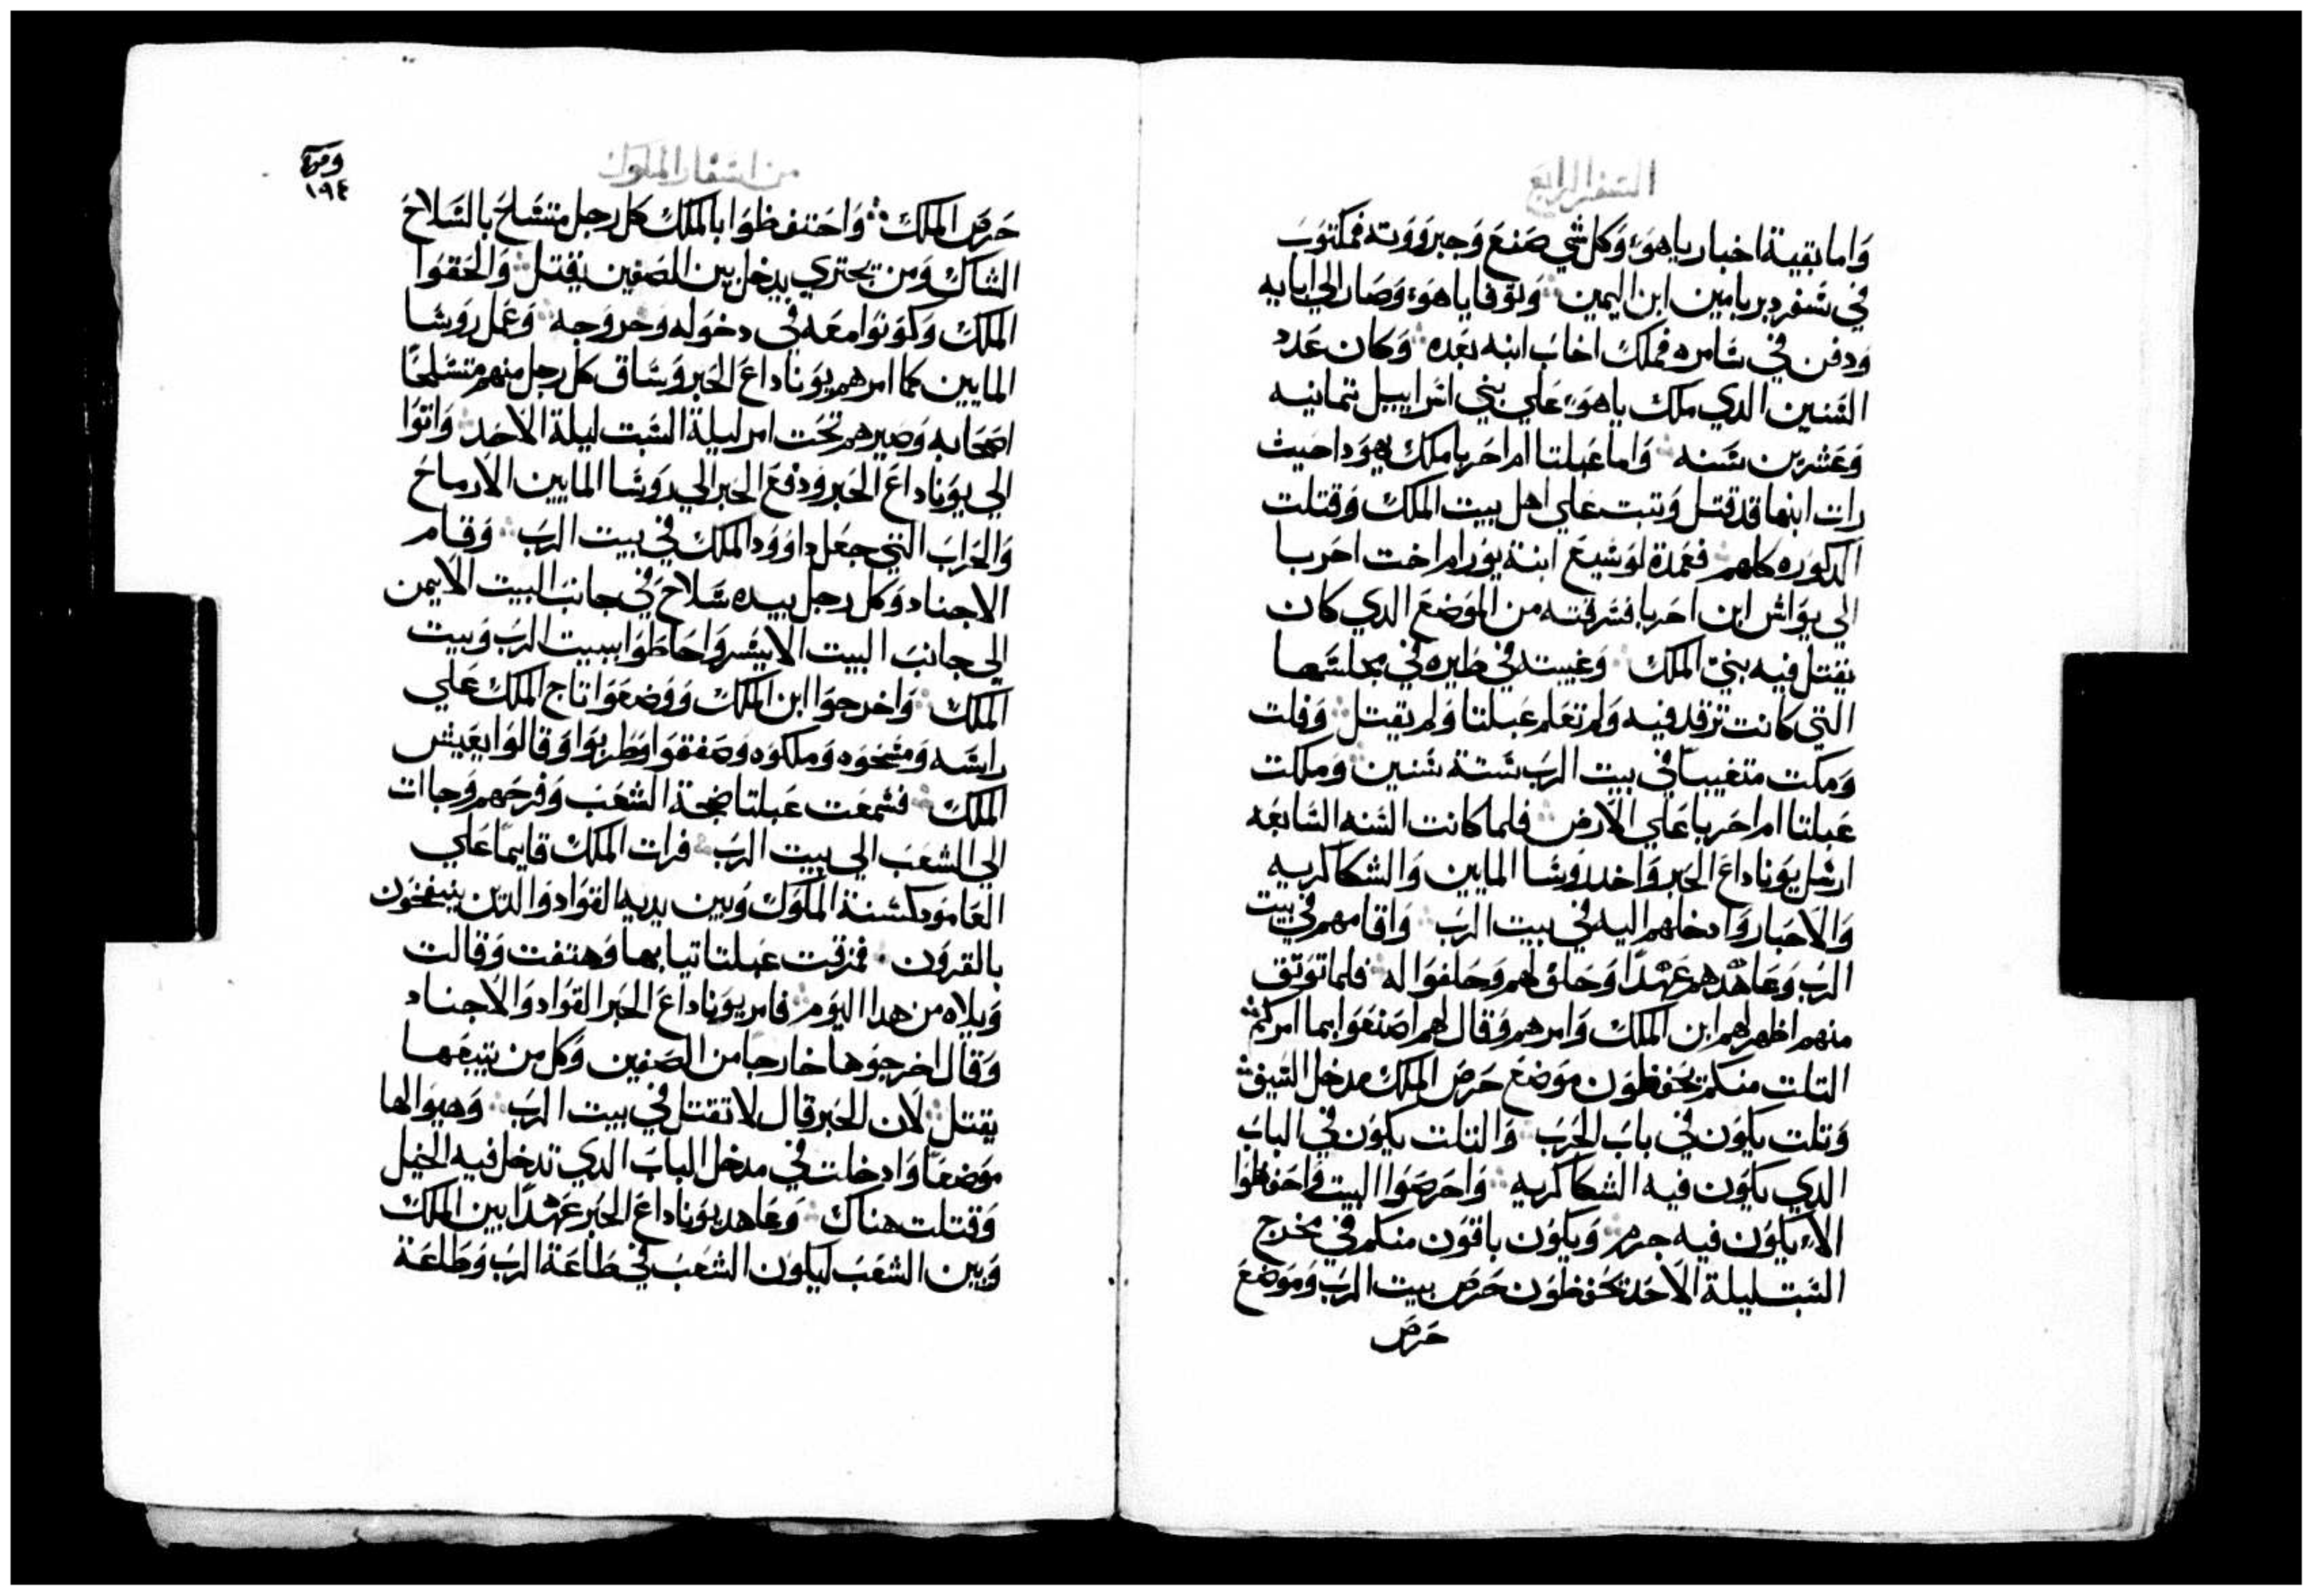 السفر الرابع
واما بقية اخبار ياهو، وكل شي صنع وجبرووته فمكتوب
في سفر دبريامين ابن اليمين ۞ وتوفا ياهو، وصار الي ابايه
ودفن في سامره فملك اخاب ابنه بعده ۞ وكان عدد
السنين الدي ملك ياهو، علي بني اسراييل تمانيه
وعشرين سنه ۞ واما عبلتا ام احربا ملك يهودا حيث
رات ابنها قد قتل وتبت علي اهل بيت الملك وقتلت
الدكوره كلهم ۞ فعمدة لوشيع ابنة يورام اخت احربا
الي يواش ابن احربا فسرقته من الموضع الدي كان
يقتل فيه بني الملك ۞ وغيبته في طيره في مجلسها
التي كانت ترقد فيه ولم تعلم عبلتا ولم يقتل ۞ وفلت
ومكت متغيبا في بيت الرب ستة سنين ۞ وملكت
عبلتا ام احربا علي الارض ۞ فلما كانت السنه السابعه
ارسل يوناداع الحبر واخد روسا المايين والشكاكريه
والاحبار وادخلهم اليه في بيت الرب ۞ واقامهم في بيت
الرب وعاهدهم عهدا وحلف لهم وحلفوا له ۞ فلما توتق
منهم اظهر لهم ابن الملك وامرهم وقال لهم اصنعوا بما امركم ۞
التلت منكم تحفظون موضع حرص الملك مدخل السيف ۞
وتلت يكون في باب الحرب ۞ والتلت يكون في الباب
الدي يكون فيه الشكاكريه ۞ واحرصوا البيت واحفظوا
الا، يكون فيه جرم ۞ ويكون باقون منكم في مخرج
السبت ليلة الاحد تحفظون حرص بيت الرب وموضع
حرص
من اسفار الملوك
١٩٤
حرص الملك ۞ واحتفظوا بالملك كل رجل متسلح بالسلاح
الشاك ومن يجتري يدخل بين الصفين يقتل ۞ والحقوا
الملك وكونوا معه في دخوله وخروجه ۞ وعمل روسا
المايين كما امرهم يوناداع الحبر وساق كل رجل منهم متسلحا
اصحابه وصيرهم تحت امر ليلة السبت ليلة الاحد ۞ واتوا
الي يوناداع الحبر ودفع الحبر الي روسا المايين الارماح
والحراب التي جعل داوود الملك في بيت الرب ۞ وقام
الاجناد وكل رجل بيده سلاح في جانب البيت الايمن
الي جانب البيت الايسر واحاطوا ببيت الرب وبيت
الملك ۞ واخرجوا ابن الملك ووضعوا تاج الملك علي
راسه ومسحوه وملكوه وصفقوا وطربوا وقالوا يعيش
الملك ۞ فسمعت عبلتا ضجة الشعب وفرحهم وجاات
الي الشعب الي بيت الرب ۞ فرات الملك قايما علي
العامود كسنة الملوك وبين يديه القواد والدين ينفخون
بالقرون ۞ فمزقت عبلتا تيابها وهتفت وقالت
ويلاه من هدا اليوم ۞ فامر يوناداع الحبر القواد والاجناد
وقال اخرجوها خارجا من الصفين وكل من يتبعها
يقتل ۞ لان الحبر قال لا تقتل في بيت الرب ۞ وهيوا لها
موضعا وادخلت في مدخل الباب الدي تدخل فيه الخيل
وقتلت هناك ۞ وعاهد يوناداع الحبر عهدا بين الملك
وبين الشعب ليكون الشعب في طاعة الرب وطاعة